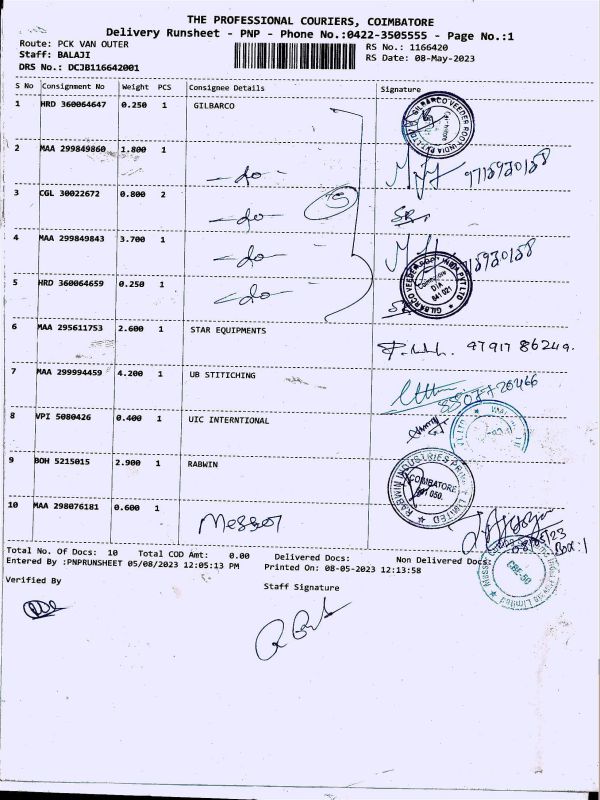 THE PROFESSIONAL COURIERS, COIMBATORE
Delivery Runsheet - PNP - Phone No.:0422-3505555 - Page No.:1
Route: PCK VAN OUTER
RS No.: 1166420
Staff: BALAJI
RS Date: 08-May-2023
DRS No.: DCJB116642001
S No Consignment No Weight PCS Consignee Details Signature
1 HRD 360064647 0.250 1 GILBARCO
GILBARCO VEEDER ROOT INDIA PVT LTD
2 MAA 299849860 1.800 1 -do-
9715930158
3 CGL 30022672 0.800 2 -do-
15
4 MAA 299849843 3.700 1 -do-
15930158
5 HRD 360064659 0.250 1 -do-
GILBARCO VEEDER ROOT INDIA PVT LTD
641 021
6 MAA 295611753 2.600 1 STAR EQUIPMENTS
97917 86249.
7 MAA 299994459 4.200 1 UB STITICHING
8 VPI 5080426 0.400 1 UIC INTERNTIONAL
9 BOH 5215015 2.900 1 RABWIN
RABWIN INDUSTRIES PRIVATE LIMITED
COIMBATORE
641 050.
10 MAA 298076181 0.600 1 Messer
08/05/23
Box:1
CBE-50
Total No. Of Docs: 10 Total COD Amt: 0.00 Delivered Docs: Non Delivered Docs:
Entered By :PNPRUNSHEET 05/08/2023 12:05:13 PM Printed On: 08-05-2023 12:13:58
Verified By
Staff Signature